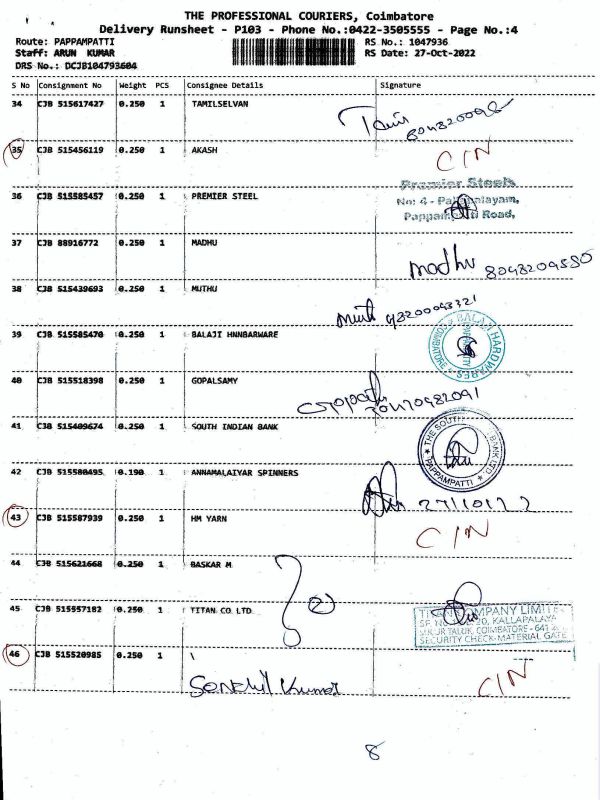 THE PROFESSIONAL COURIERS, Coimbatore
Delivery Runsheet - P103 - Phone No.:0422-3505555 - Page No.:4
Route: PAPPAMPATTI RS No.: 1047936
Staff: ARUN KUMAR RS Date: 27-Oct-2022
DRS No.: DCJB104793604
S No Consignment No Weight PCS Consignee Details Signature
34 CJB 515617427 0.250 1 TAMILSELVAN
35 CJB 515456119 0.250 1 AKASH C/N
36 CJB 515585457 0.250 1 PREMIER STEEL
Premier Steels
No: 4 -
Road,
37 CJB 88916772 0.250 1 MADHU
madhu 8098209550
38 CJB 515439693 0.250 1 MUTHU
39 CJB 515585470 0.250 1 BALAJI HNNBARWARE
BALAJI HARDWARES COIMBATORE
40 CJB 515518398 0.250 1 GOPALSAMY
41 CJB 515409674 0.250 1 SOUTH INDIAN BANK
THE SOUTH BANK LTD. PAPPAMPATTI
42 CJB 515580495 0.190 1 ANNAMALAIYAR SPINNERS
43 CJB 515587939 0.250 1 HM YARN C/N
44 CJB 515621668 0.250 1 BASKAR M
45 CJB 515557182 0.250 1 TITAN CO LTD
COMPANY LIMITE
KALLAPALAYA
TALUK, COIMBATORE - 641
SECURITY CHECK-MATERIAL GATE
46 CJB 515520985 0.250 1 \
Senthil Kumar C/N
8